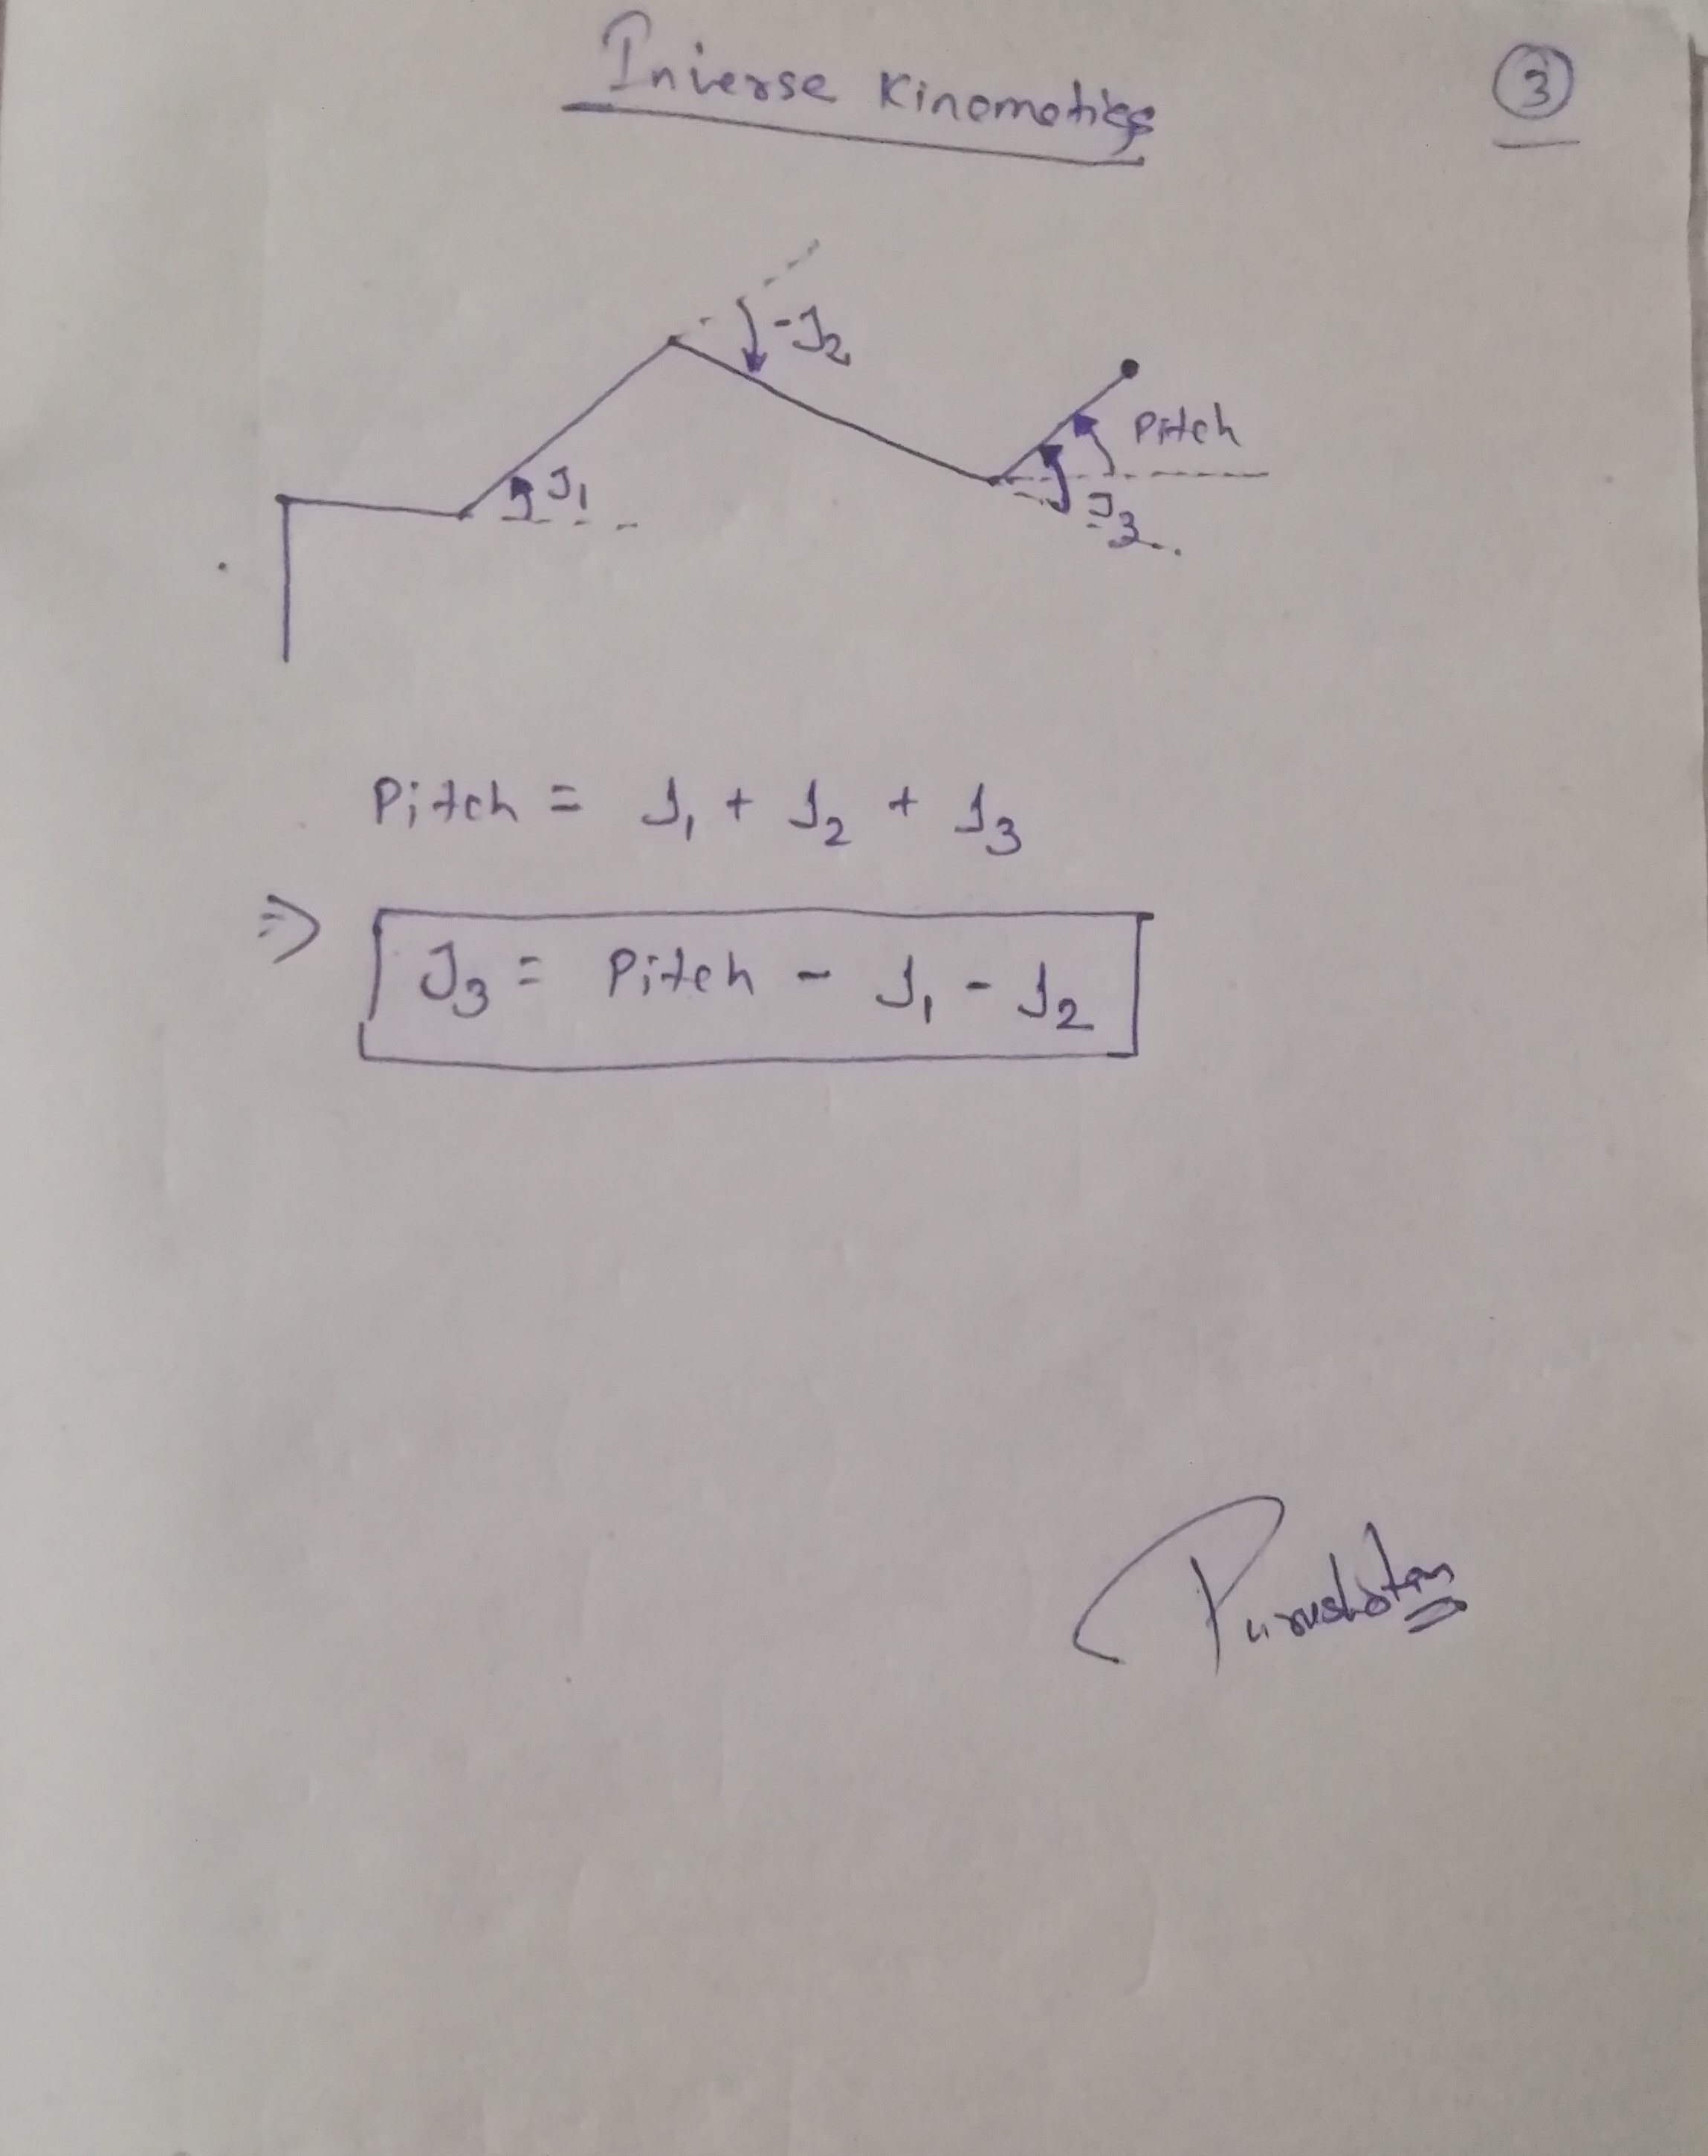 Inverse Kinematics
3
-J2
Pitch
J1
J3
Pitch = J1 + J2 + J3
⇒ J3 = Pitch - J1 - J2
Purushotam